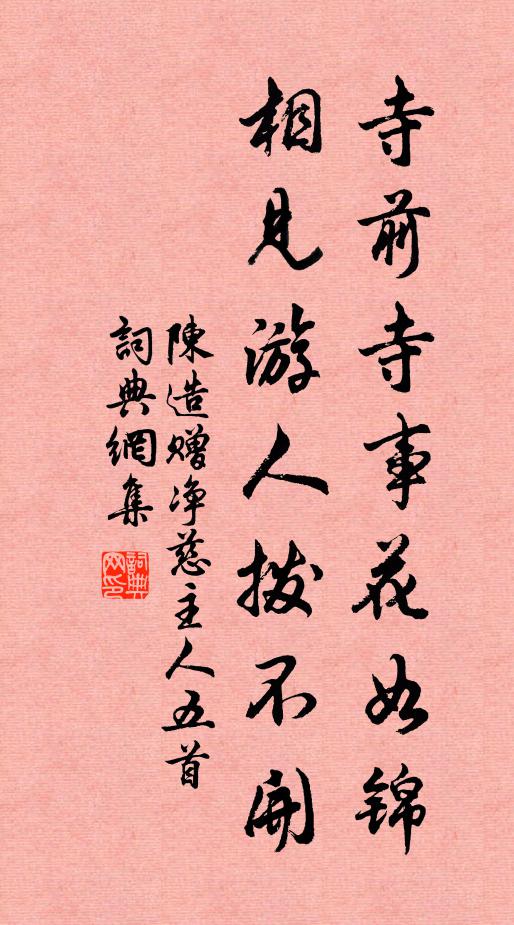 寺前寺事花如锦
相見游人拨不開
陳造赠净慈主人五首
詞典網集
詞典网印